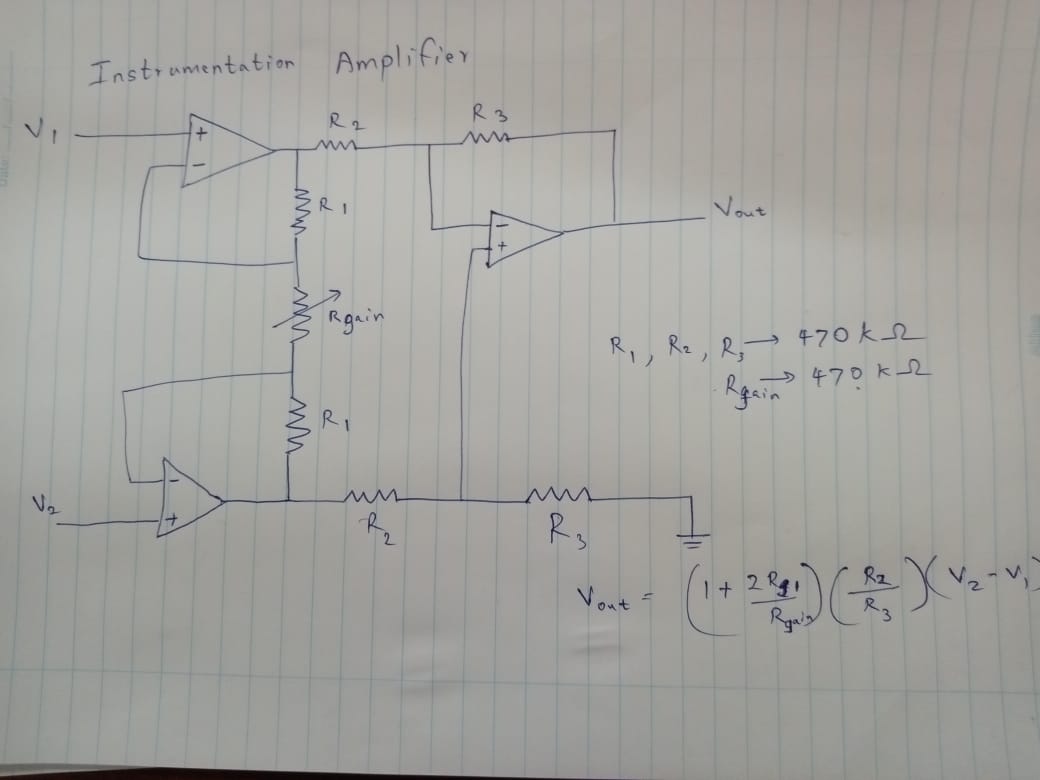 Instrumentation Amplifier
V1
+
-
R2
R3
R1
-
+
Vout
Rgain
R1, R2, R3 → 470 kΩ
Rgain → 470 kΩ
R1
V2
-
+
R2
R3
Vout = (1 + 2R1/Rgain)(R2/R3)(V2 - V1)